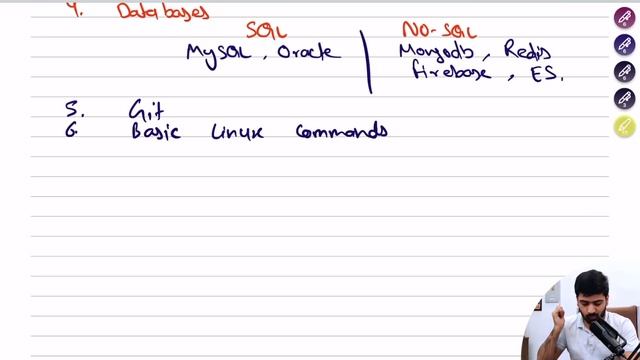 4. Databases
SQL NO-SQL
MySQL, Oracle Mongodb, Redis
firebase, ES.
5. Git
6. Basic Linux commands